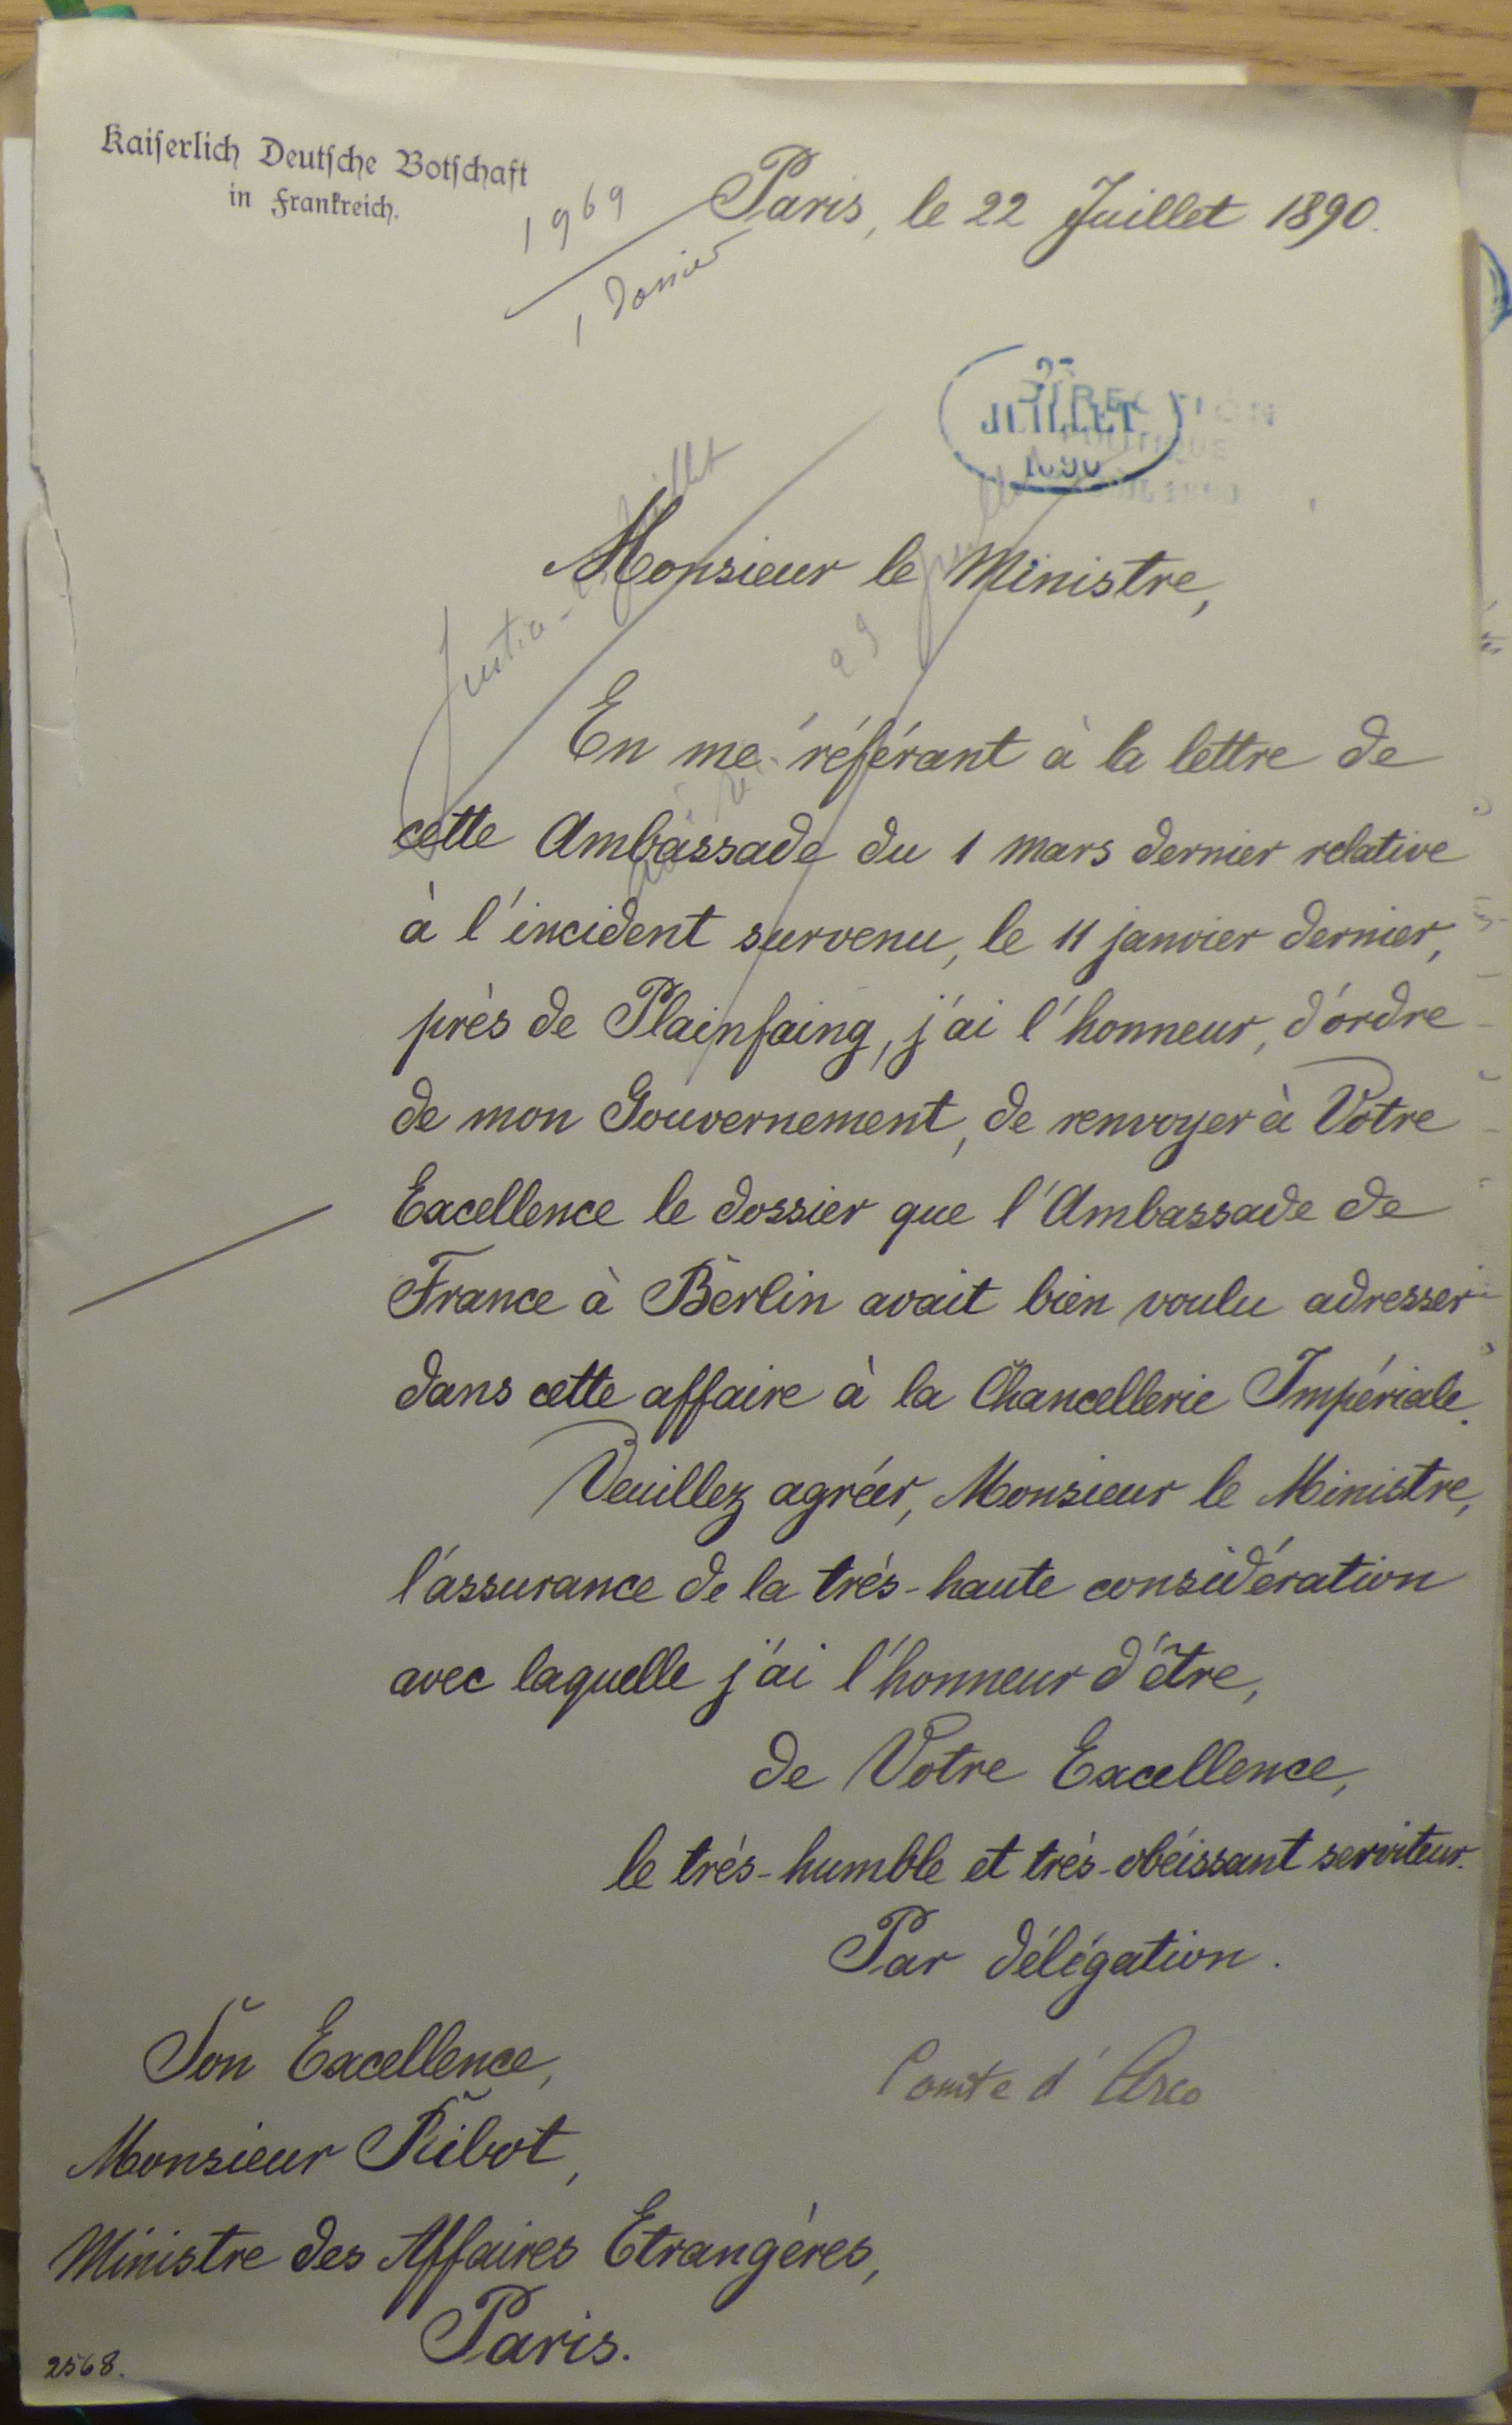 Kaiserlich Deutsche Botschaft
in Frankreich.
1969
1 dossier
Paris, le 22 Juillet 1890.
JUILLET
1890
DIRECTION
POLITIQUE
Monsieur le Ministre,
En me référant à la lettre de
cette Ambassade du 1 mars dernier relative
à l'incident survenu, le 11 janvier dernier,
près de Plainfaing, j'ai l'honneur, d'ordre
de mon Gouvernement, de renvoyer à Votre
Excellence le dossier que l'Ambassade de
France à Berlin avait bien voulu adresser
dans cette affaire à la Chancellerie Impériale.
Veuillez agréer, Monsieur le Ministre,
l'assurance de la très-haute considération
avec laquelle j'ai l'honneur d'être,
de Votre Excellence,
le très-humble et très-obéissant serviteur.
Par délégation.
Comte d'Arco
Son Excellence,
Monsieur Ribot,
Ministre des Affaires Etrangères,
Paris.
2568.